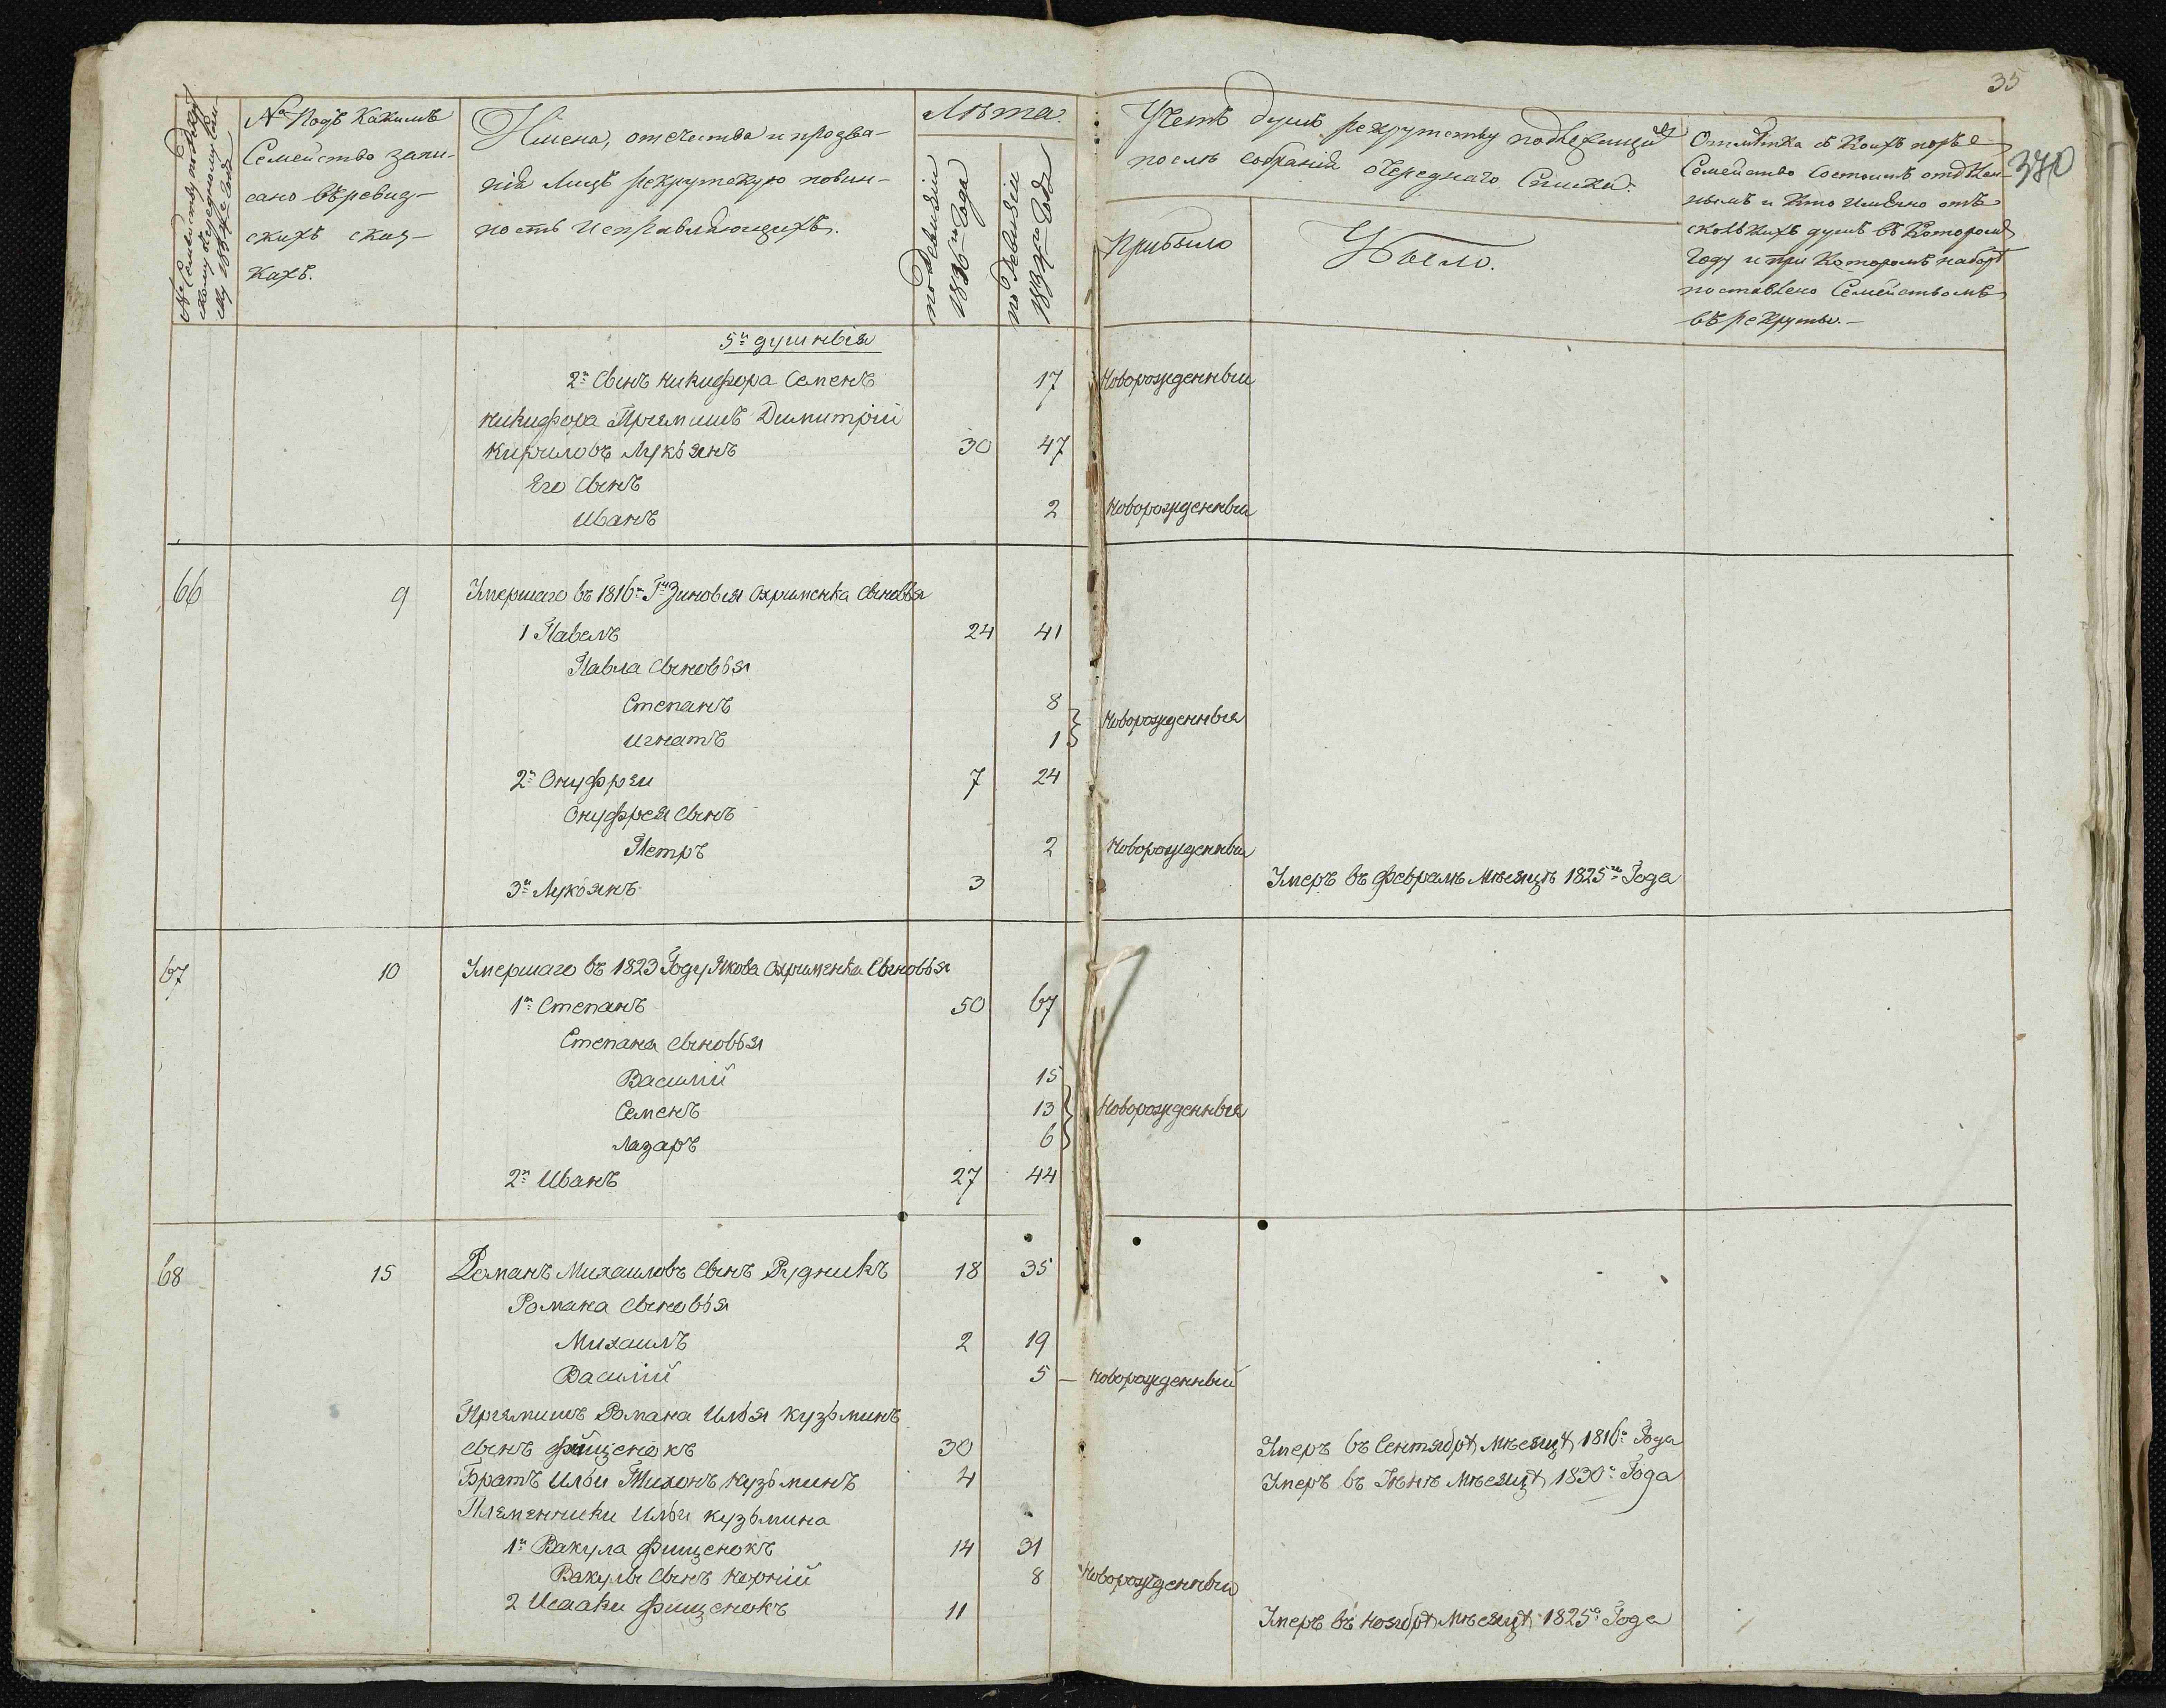 35
370
№ Семейству по
№ Подъ какимъ
Семейство запи-
сано въ ревиз-
скихъ сказ-
кахъ.
Имена, отечества и прозва-
нія лицъ рекрутскую повин-
ность исправляющихъ.
Лѣта.
по ревизіи
1816го Года
по ревизіи
Года
Учетъ душъ рекрутству подлежащихъ
послѣ собранія очереднаго списка.
Прибыло
Убыло.
Отмѣтка съ коихъ поръ
Семейство состоитъ
и кто именно отъ
сколькихъ душъ въ которомъ
году и при которомъ наборѣ
поставлено Семействомъ
въ рекруты.-
5ти душныя
2й Сынъ Никифора Семенъ 17 Новорожденный
Никифора Пріемышъ Димитрій
Кириловъ Лукьянъ 30 47
Его Сынъ
Иванъ 2 Новорожденный
66 9 Умершаго въ 1816м Гду Зиновія Охрименка Сыновья
1 Павелъ 24 41
Павла Сыновья
Степанъ 8
Новорожденныя
Игнатъ 1
2й Онуфрей 7 24
Онуфрея Сынъ
Петръ 2 Новорожденный
3й Лукьянъ 3 Умеръ въ Февралѣ мѣсяцѣ 1825го Года
67 10 Умершаго въ 1823 Году Якова Охрименка Сыновья
1й Степанъ 50 67
Степана Сыновья
Василій 15
Семенъ 13 Новорожденныя
Лазаръ 6
2й Иванъ 27 44
68 15 Романъ Михаиловъ Сынъ Рудникъ 18 35
Романа Сыновья
Михаилъ 2 19
Василій 5 — Новорожденный
Пріемышъ Романа Илья Кузьминъ
Сынъ Фищенокъ 30 Умеръ въ Сентябрѣ мѣсяцѣ 1816го Года
Братъ Ильи Тихонъ Кузьминъ 4 Умеръ въ Іюнѣ мѣсяцѣ 1830го Года
Племенники Ильи Кузьмина
1й Вакула Фищенокъ 14 31
Вакулы Сынъ Корній 8 Новорожденный
2 Исааки Фищенокъ 11 Умеръ въ Ноябрѣ мѣсяцѣ 1825го Года